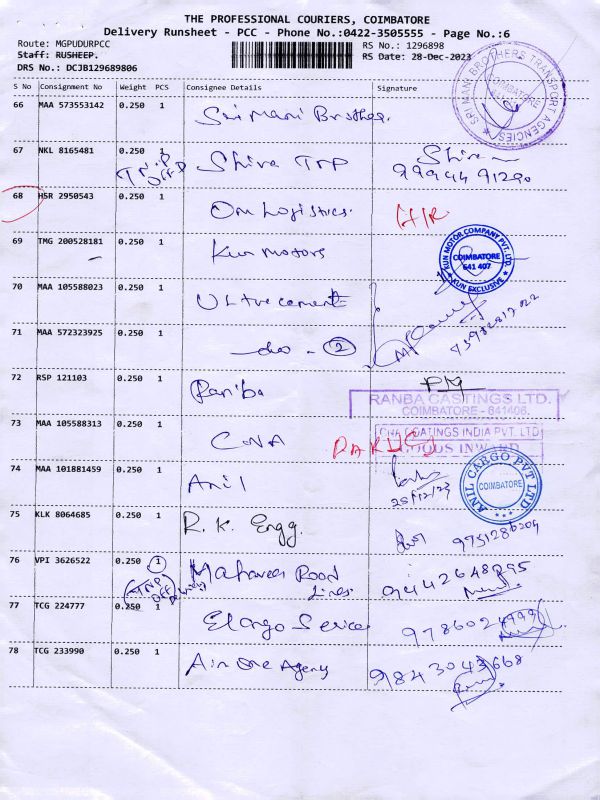 THE PROFESSIONAL COURIERS, COIMBATORE
Delivery Runsheet - PCC - Phone No.:0422-3505555 - Page No.:6
Route: MGPUDURPCC RS No.: 1296898
Staff: RUSHEEP. RS Date: 28-Dec-2023
DRS No.: DCJB129689806
S No Consignment No Weight PCS Consignee Details Signature
66 MAA 573553142 0.250 1 Sri Mani Brother.
SRI MANI BROTHERS TRANSPORT AGENCIES
COIMBATORE
67 NKL 8165481 0.250 1 Shiva Trp
68 HSR 2950543 0.250 1 Om Logistics. H/R
69 TMG 200528181 0.250 1 Kun Motors
KUN MOTOR COMPANY PVT. LTD.
COIMBATORE
641 407
KUN EXCLUSIVE
70 MAA 105588023 0.250 1 Ultra cement
71 MAA 572323925 0.250 1 -do- 2
72 RSP 121103 0.250 1 Ranba
RANBA CASTINGS LTD.
COIMBATORE - 641406.
73 MAA 105588313 0.250 1 CNA
COATINGS INDIA PVT. LTD
GOODS INWARD
74 MAA 101881459 0.250 1 Anil 28/12/23
ANIL CARGO PVT LTD
COIMBATORE
75 KLK 8064685 0.250 1 R.K. Engg.
76 VPI 3626522 0.250 1 Mahaveer Road
Lines 9442648995
77 TCG 224777 0.250 1
78 TCG 233990 0.250 1 Air One Agency 9843043668